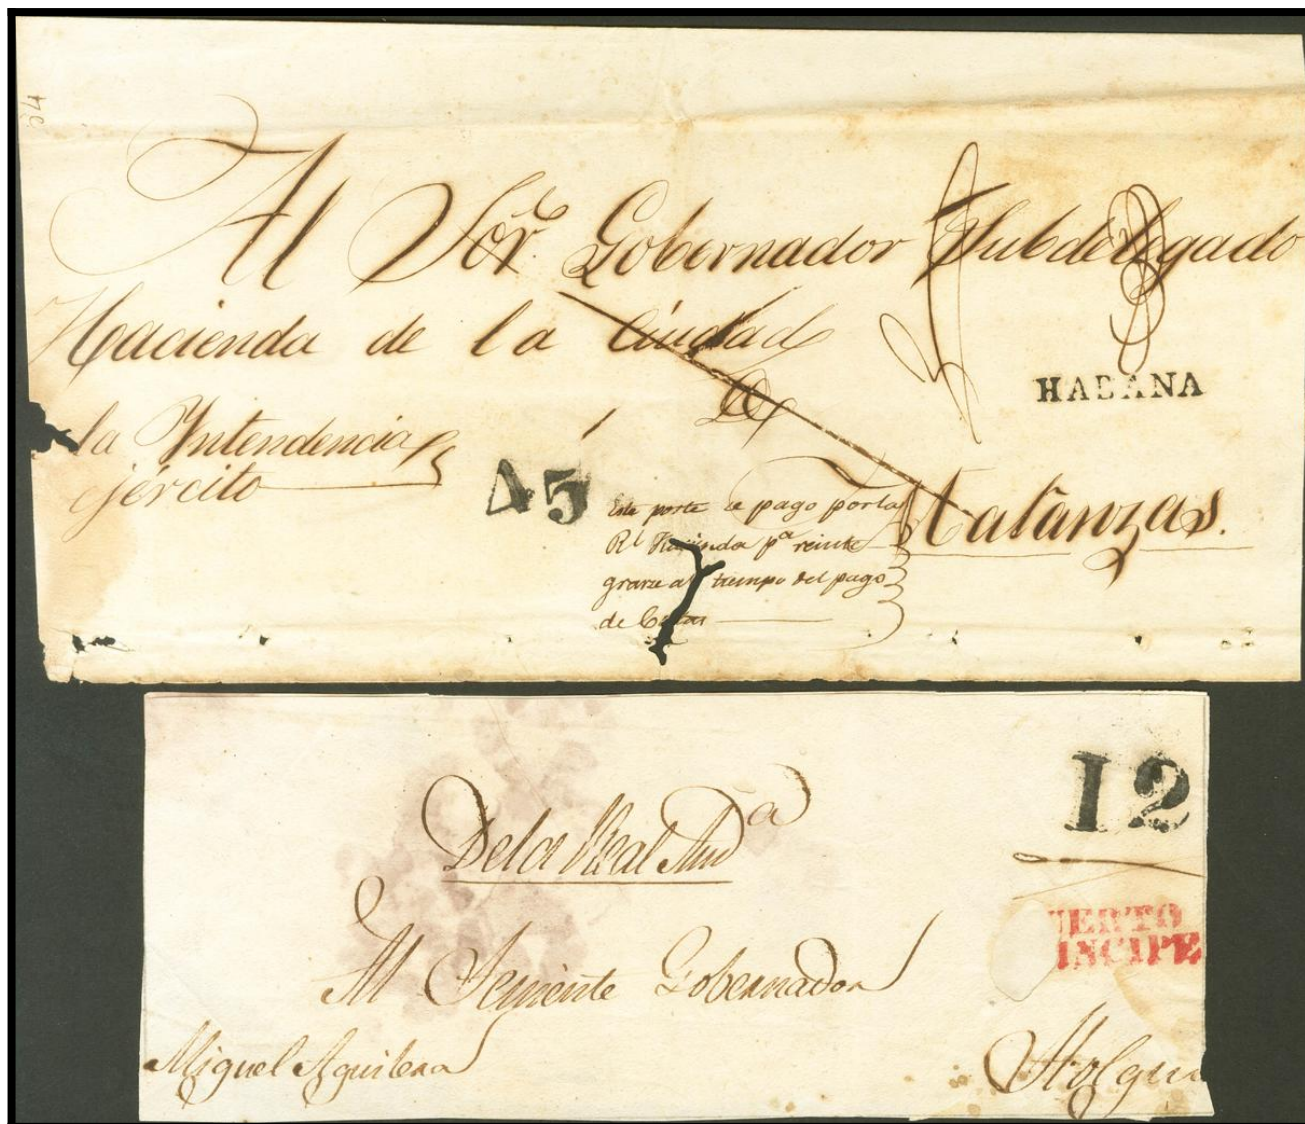 24
Al Sor. Gobernador Subdelegado
Hacienda de la Ciudad
De
HABANA
la Yntendencia
ejército
45
Matanzas.
Este porte se pago por la
Rl Hacienda pa reinte
grarse al tiempo del pago
de
12
De la Real Auda
PUERTO
PRINCIPE
Al Teniente Gobernador
Miguel Aguilera
Holguin